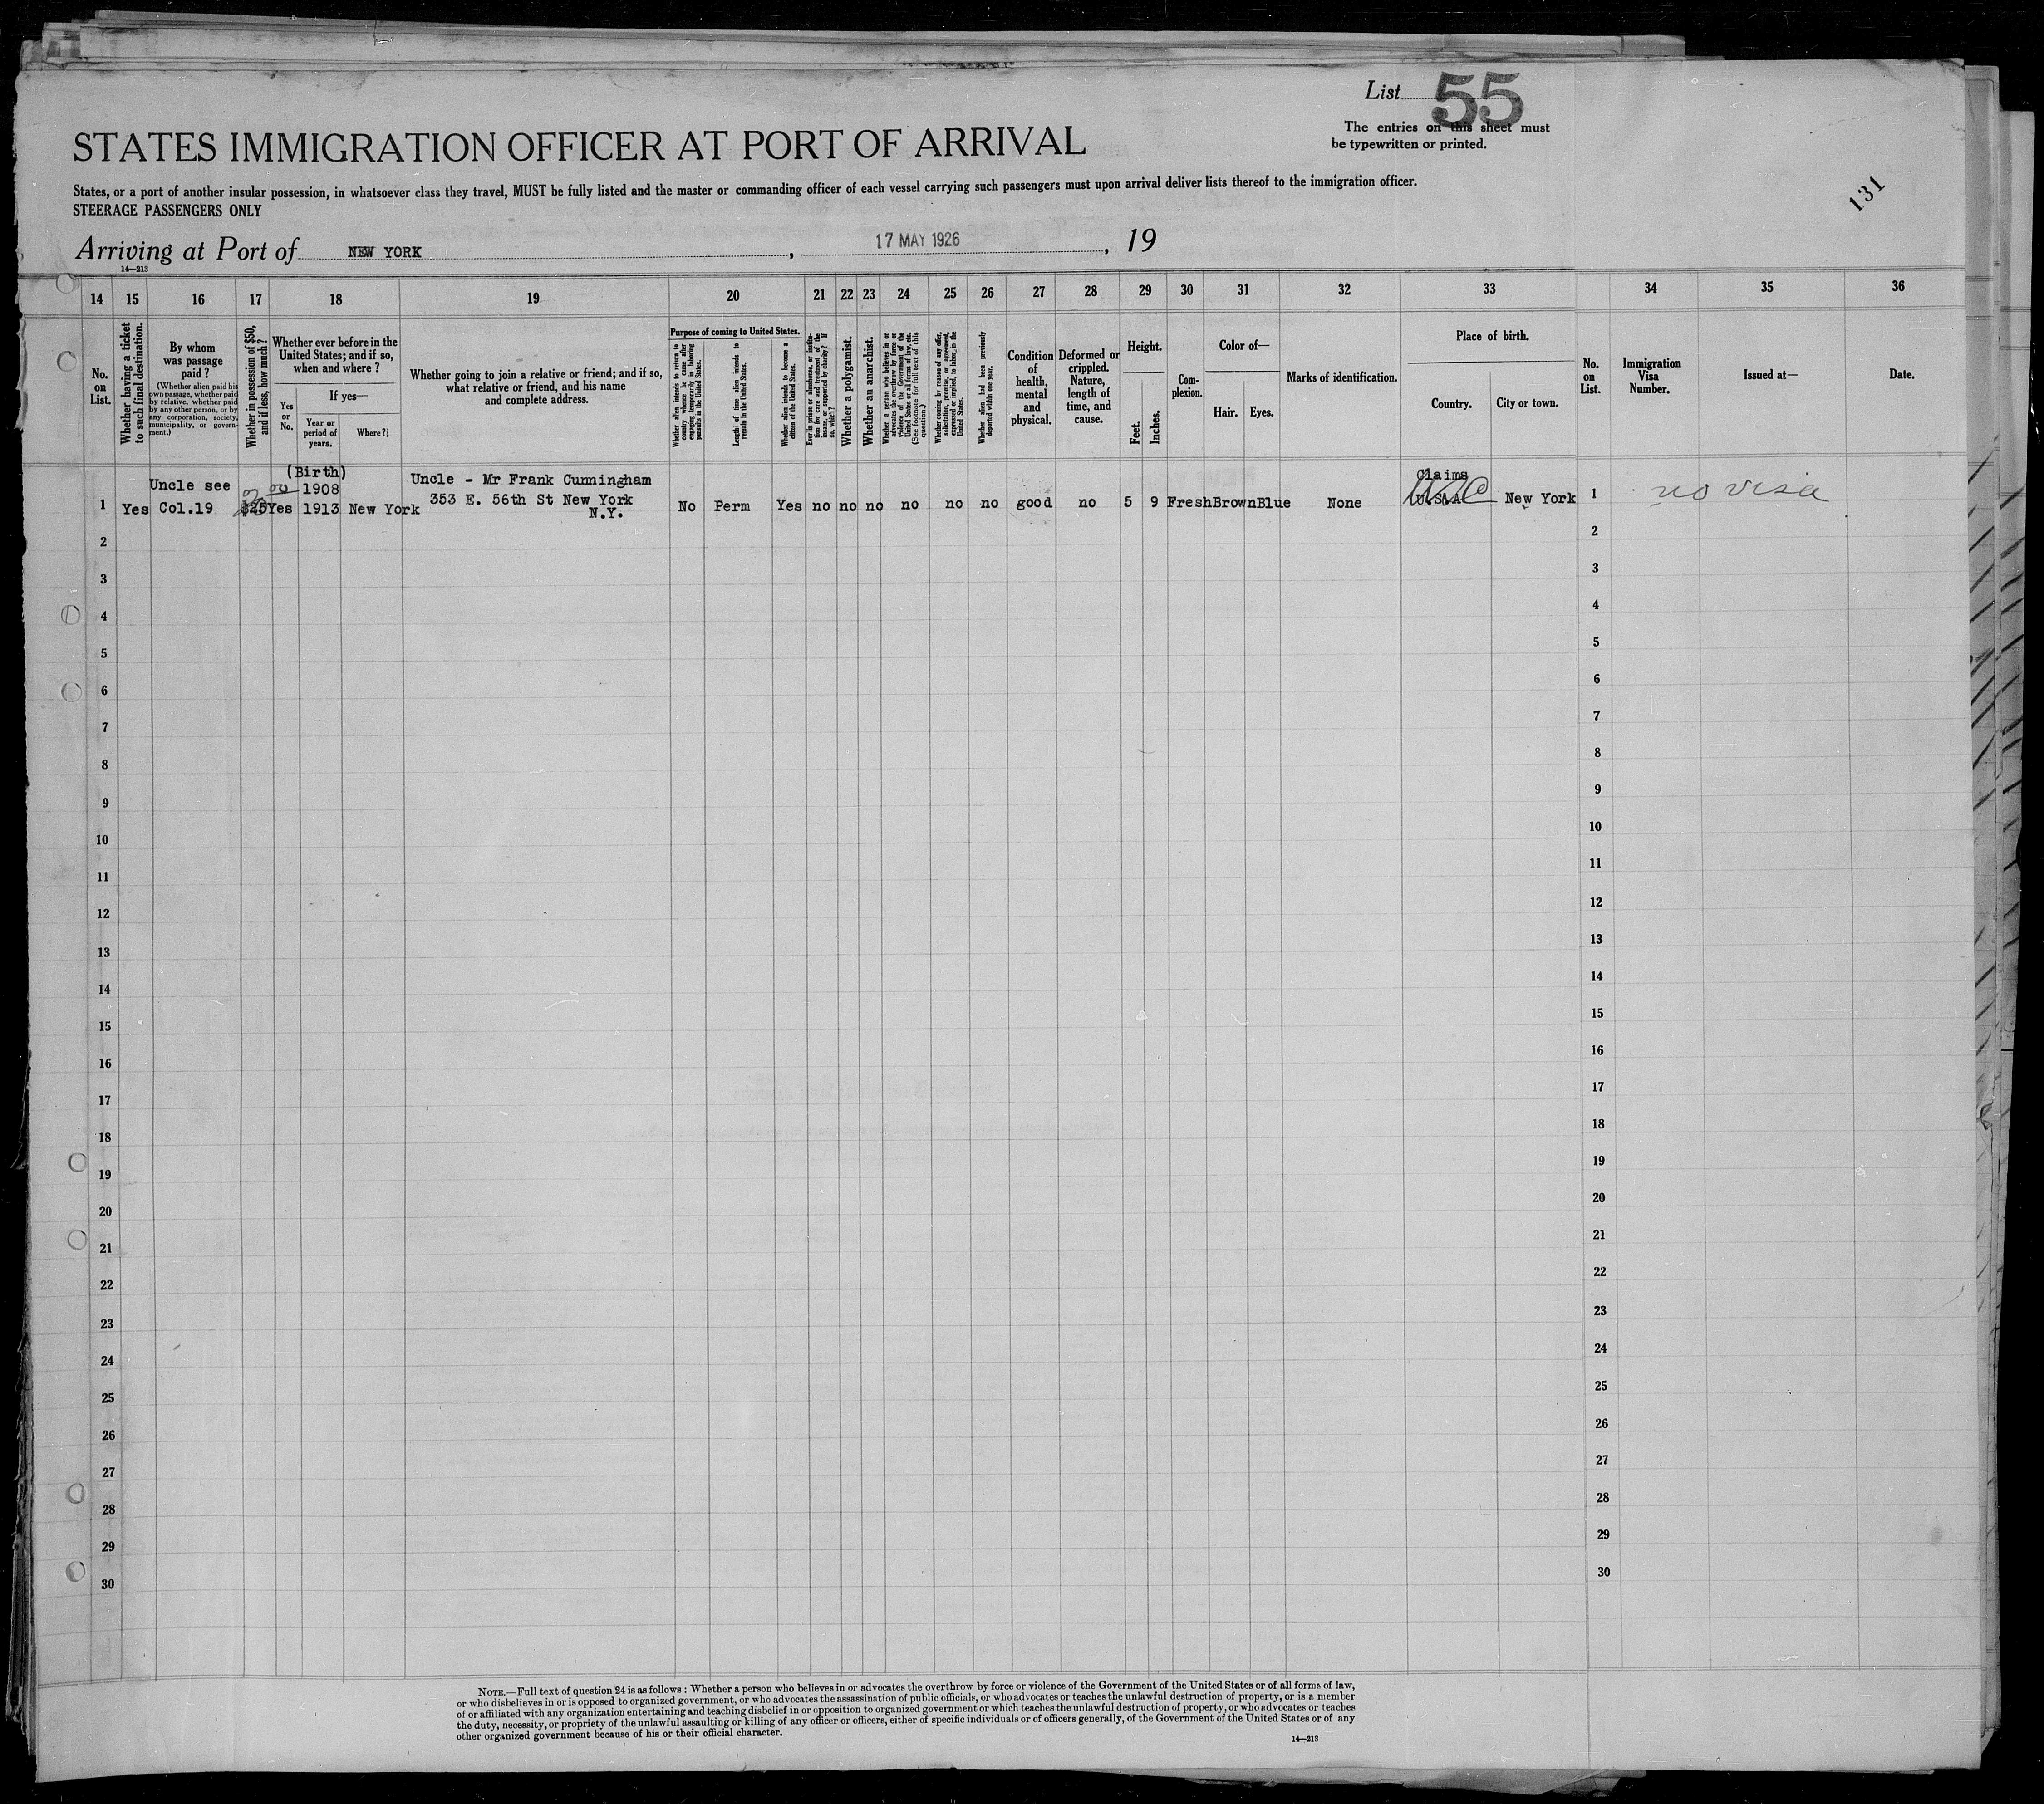 List 55
The entries on this sheet must
be typewritten or printed.
STATES IMMIGRATION OFFICER AT PORT OF ARRIVAL
States, or a port of another insular possession, in whatsoever class they travel, MUST be fully listed and the master or commanding officer of each vessel carrying such passengers must upon arrival deliver lists thereof to the immigration officer.
STEERAGE PASSENGERS ONLY
131
Arriving at Port of NEW YORK, 17 MAY 1926, 19
14—213
14 15 16 17 18 19 20 21 22 23 24 25 26 27 28 29 30 31 32 33 34 35 36
No. on List.
Whether having a ticket to such final destination.
By whom was passage paid?
(Whether alien paid his own passage, whether paid by relative, whether paid by any other person, or by any corporation, society, municipality, or government.)
Whether in possession of $50, and if less, how much?
Whether ever before in the United States; and if so, when and where?
Yes or No.
If yes—
Year or period of years.
Where?
Whether going to join a relative or friend; and if so, what relative or friend, and his name and complete address.
Purpose of coming to United States.
Whether alien intends to return to country whence he came after engaging temporarily in laboring pursuits in the United States.
Length of time alien intends to remain in the United States.
Whether alien intends to become a citizen of the United States.
Ever in prison or almshouse, or institution for care and treatment of the insane, or supported by charity? If so, which?
Whether a polygamist.
Whether an anarchist.
Whether a person who believes in or advocates the overthrow by force or violence of the Government of the United States or all forms of law, etc. (See footnote for full text of this question.)
Whether coming by reason of any offer, solicitation, promise, or agreement, expressed or implied, to labor in the United States.
Whether alien had been previously deported within one year.
Condition of health, mental and physical.
Deformed or crippled. Nature, length of time, and cause.
Height.
Feet.
Inches.
Complexion.
Color of—
Hair.
Eyes.
Marks of identification.
Place of birth.
Country.
City or town.
No. on List.
Immigration Visa Number.
Issued at—
Date.
(Birth)
Uncle see 1908 Uncle - Mr Frank Cunningham Claims
353 E. 56th St New York
1 Yes Col.19 $25 Yes 1913 New York N.Y. No Perm Yes no no no no no no good no 5 9 Fresh Brown Blue None U.S.A. New York 1 no visa
2 2
3 3
4 4
5 5
6 6
7 7
8 8
9 9
10 10
11 11
12 12
13 13
14 14
15 15
16 16
17 17
18 18
19 19
20 20
21 21
22 22
23 23
24 24
25 25
26 26
27 27
28 28
29 29
30 30
NOTE.—Full text of question 24 is as follows: Whether a person who believes in or advocates the overthrow by force or violence of the Government of the United States or of all forms of law,
or who disbelieves in or is opposed to organized government, or who advocates the assassination of public officials, or who advocates or teaches the unlawful destruction of property, or is a member
of or affiliated with any organization entertaining and teaching disbelief in or opposition to organized government or which teaches the unlawful destruction of property, or who advocates or teaches
the duty, necessity, or propriety of the unlawful assaulting or killing of any officer or officers, either of specific individuals or of officers generally, of the Government of the United States or of any
other organized government because of his or their official character.
14—213